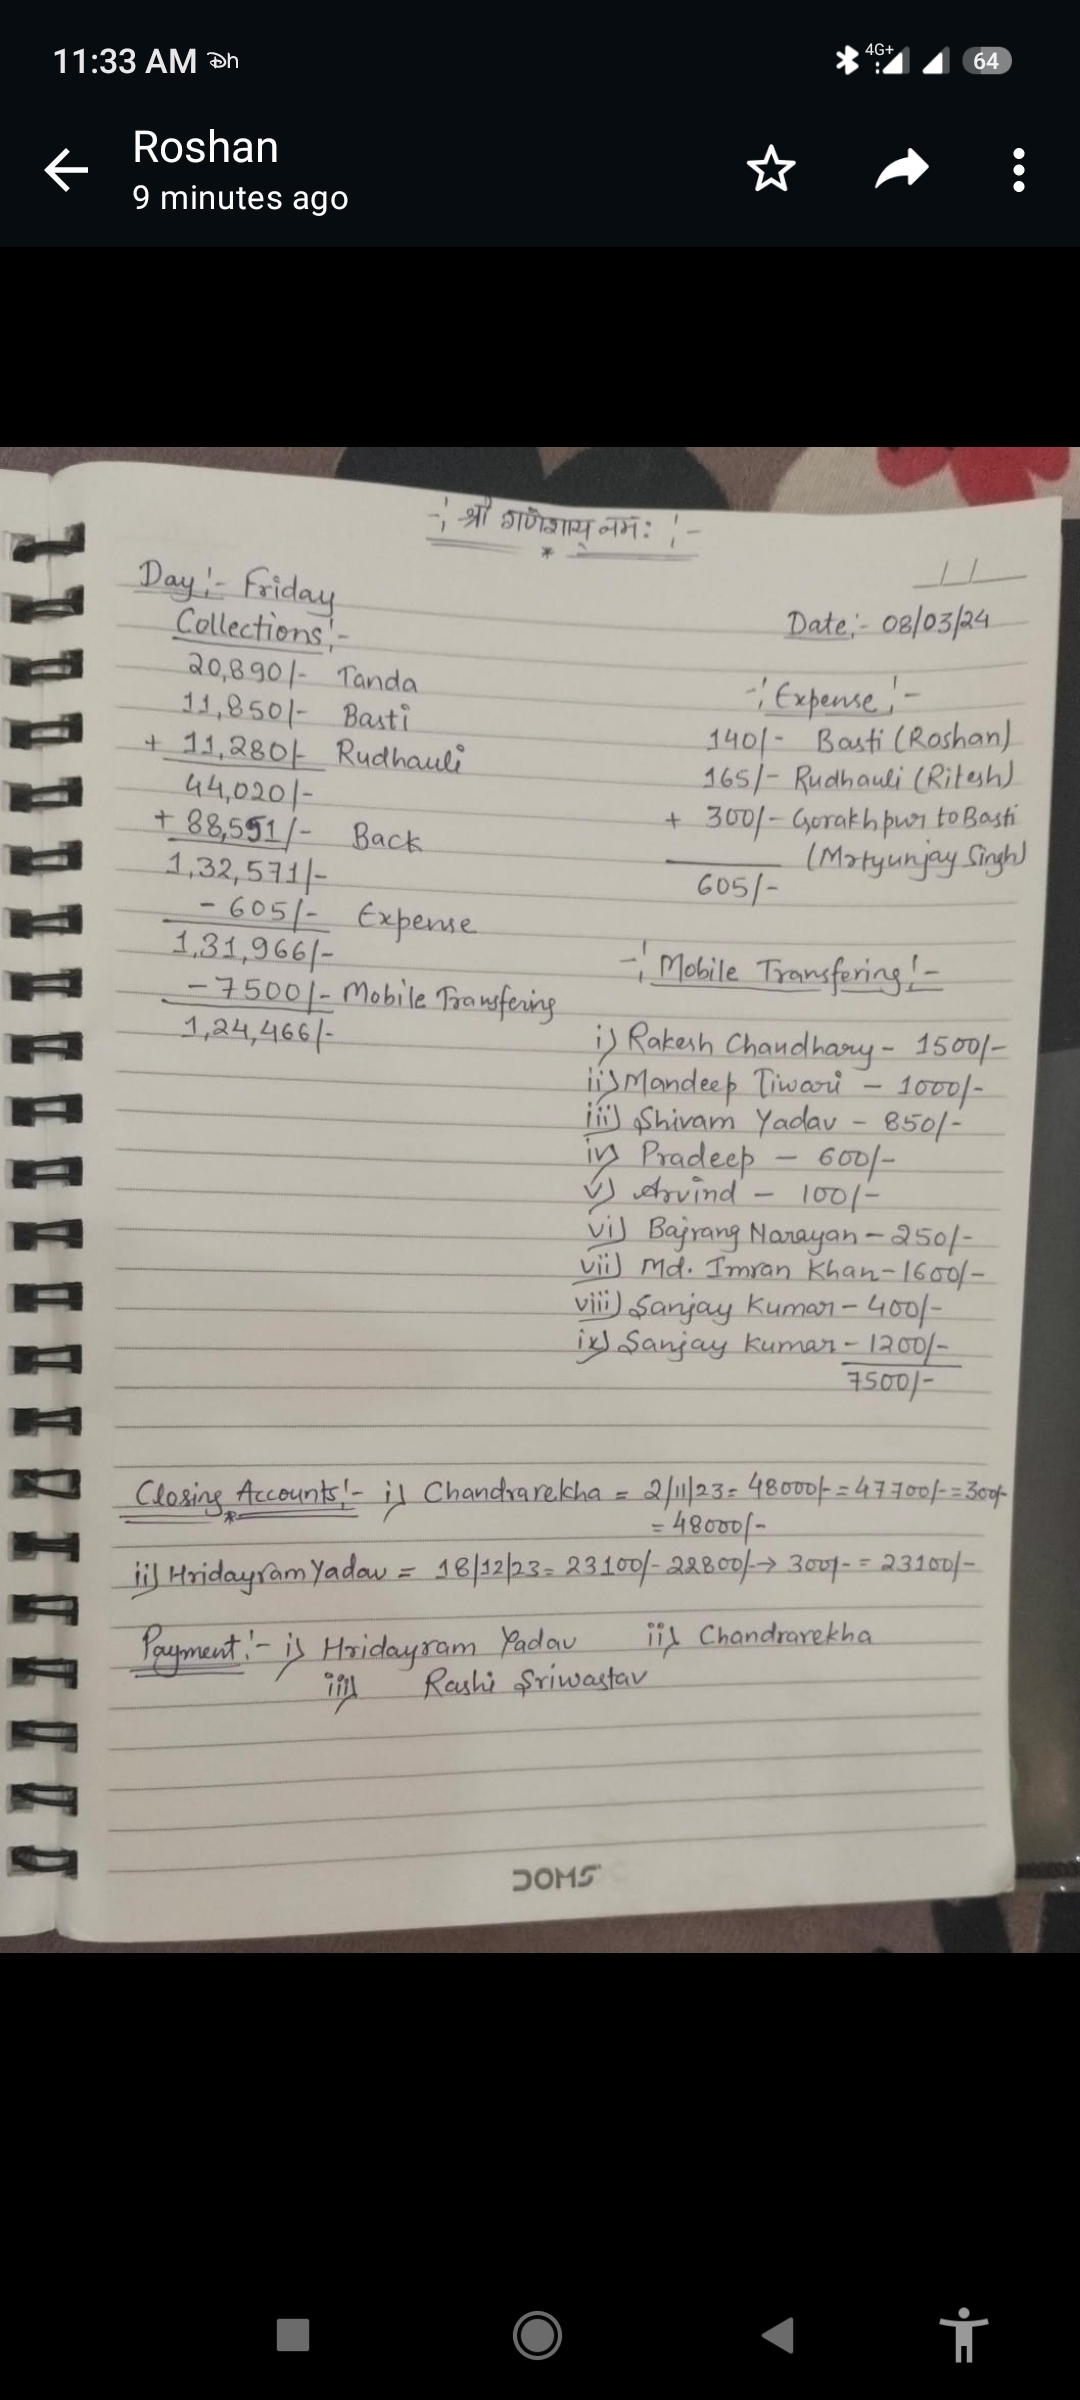 11:33 AM
4G+ 64
Roshan
9 minutes ago
-:श्री गणेशाय नमः:-
*
Day:- Friday
Date:- 08/03/24
Collections:-
20,890/- Tanda
11,850/- Basti
+ 11,280/- Rudhauli
44,020/-
+ 88,551/- Back
1,32,571/-
- 605/- Expense
1,31,966/-
- 7500/- Mobile Transfering
1,24,466/-
-:Expense:-
140/- Basti (Roshan)
165/- Rudhauli (Ritesh)
+ 300/- Gorakhpur to Basti
(Mrtyunjay Singh)
605/-
-:Mobile Transfering:-
i) Rakesh Chaudhary - 1500/-
ii) Mandeep Tiwari - 1000/-
iii) Shivam Yadav - 850/-
iv) Pradeep - 600/-
v) Arvind - 100/-
vi) Bajrang Narayan - 250/-
vii) Md. Imran Khan - 1600/-
viii) Sanjay Kumar - 400/-
ix) Sanjay Kumar - 1200/-
7500/-
Closing Accounts:- i) Chandrarekha = 2/11/23 = 48000/- = 47700/- = 300/-
*
= 48000/-
ii) Hridayram Yadav = 18/12/23 = 23100/- 22800/- → 300/- = 23100/-
Payment:- i) Hridayram Yadav ii) Chandrarekha
iii) Rashi Sriwastav
DOMS